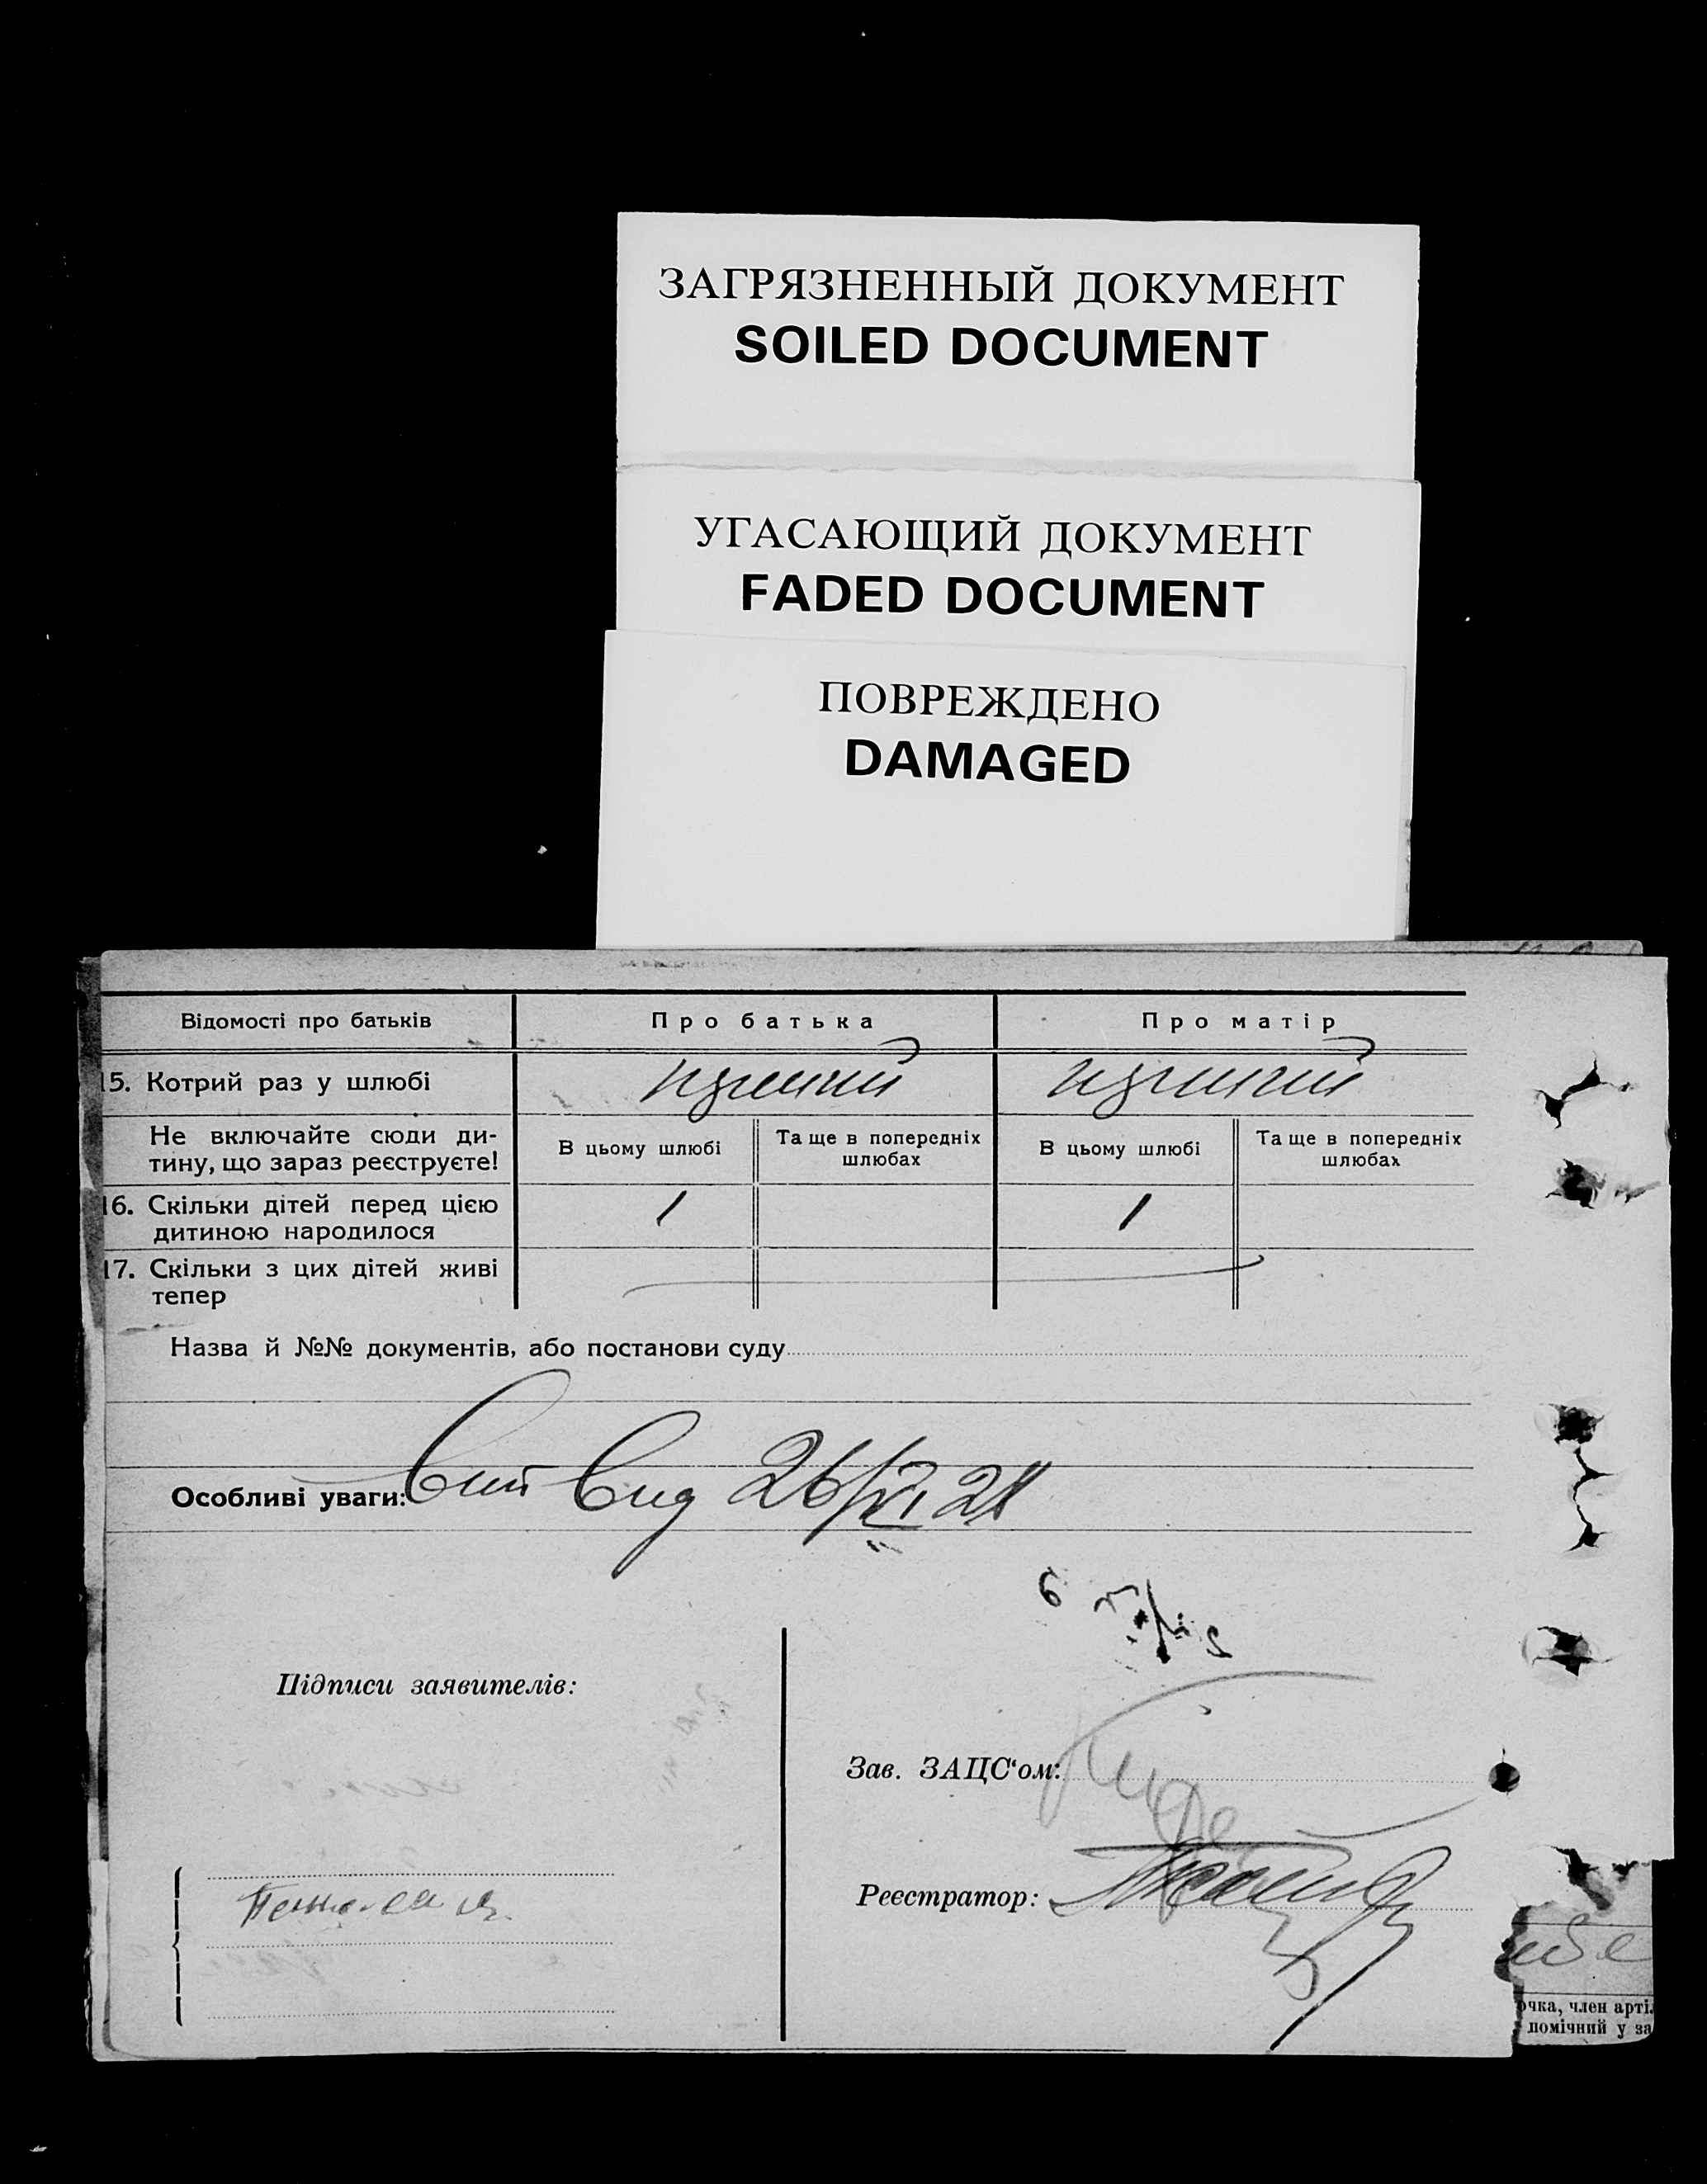 ЗАГРЯЗНЕННЫЙ ДОКУМЕНТ
SOILED DOCUMENT
УГАСАЮЩИЙ ДОКУМЕНТ
FADED DOCUMENT
ПОВРЕЖДЕНО
DAMAGED
Відомості про батьків Про батька Про матір
15. Котрий раз у шлюбі перший перший
Не включайте сюди ди-
тину, що зараз реєструєте!
В цьому шлюбі
Та ще в попередніх
шлюбах
В цьому шлюбі
Та ще в попередніх
шлюбах
16. Скільки дітей перед цією
дитиною народилося
1 1
17. Скільки з цих дітей живі
тепер
Назва й №№ документів, або постанови суду
Особливі уваги: 26/VI 28
Підписи заявителів:
Зав. ЗАЦС'ом:
Реєстратор:
очка, член артіл
помічний у за